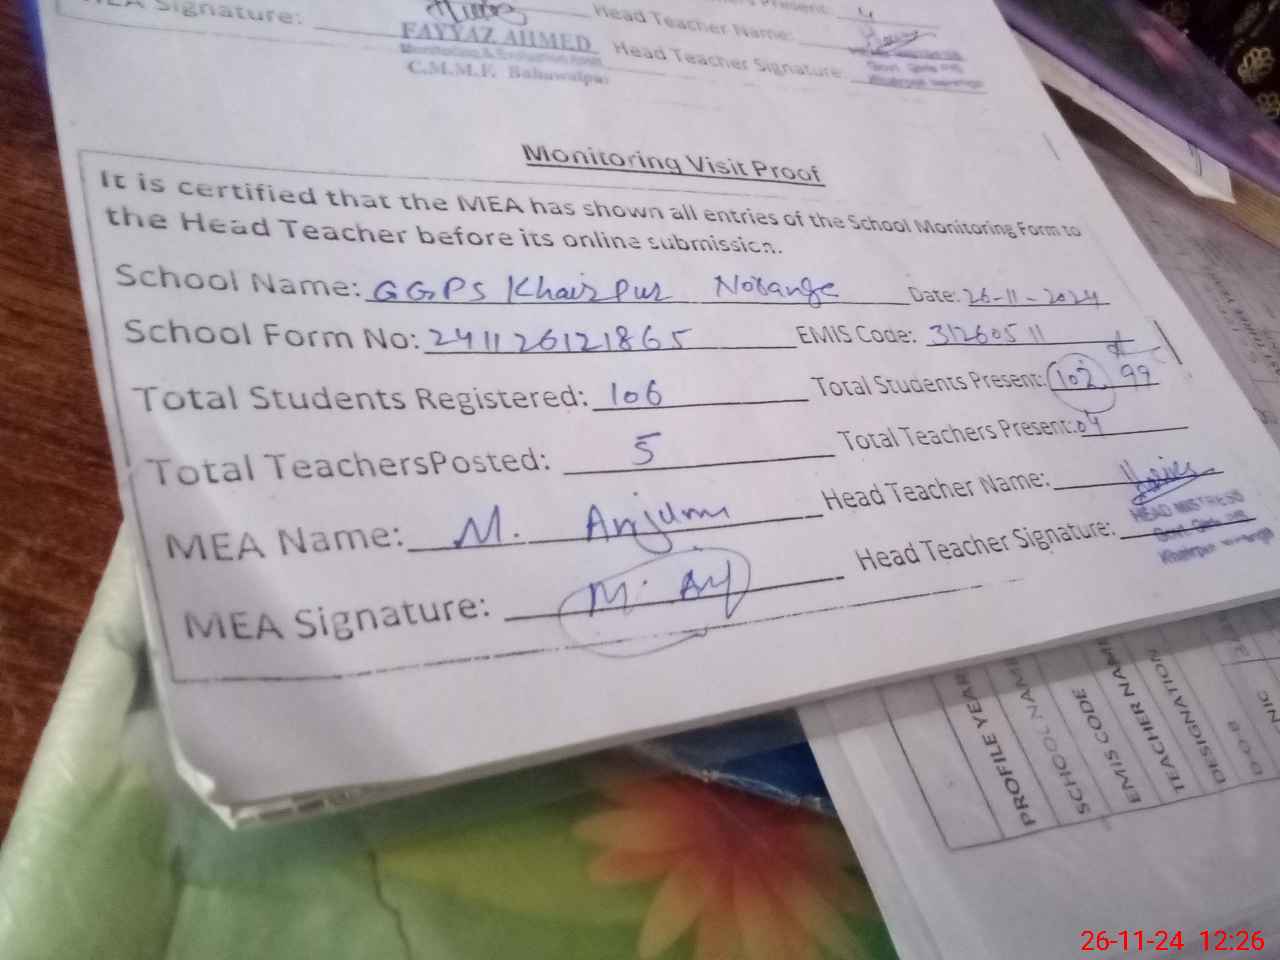 MEA Signature:
Present: 4
Head Teacher Name:
FAYYAZ AHMED
Monitoring & Evaluation
C.M.M.F. Bahawalpur
Head Teacher Signature:
Monitoring Visit Proof
It is certified that the MEA has shown all entries of the School Monitoring Form to
the Head Teacher before its online submission.
School Name: GGPS Khairpur Norange Date: 26-11-2024
School Form No: 241126121865 EMIS Code: 31260511
Total Students Registered: 106 Total Students Present: 102 99
Total TeachersPosted: 5 Total Teachers Present: 04
MEA Name: M. Anjum Head Teacher Name:
HEAD MISTRESS
MEA Signature: M. Anj Head Teacher Signature:
Khairpur
PROFILE YEAR
SCHOOL NAME
EMIS CODE
TEACHER NAME
DESIGNATION
D-O-B
CNIC
26-11-24 12:26